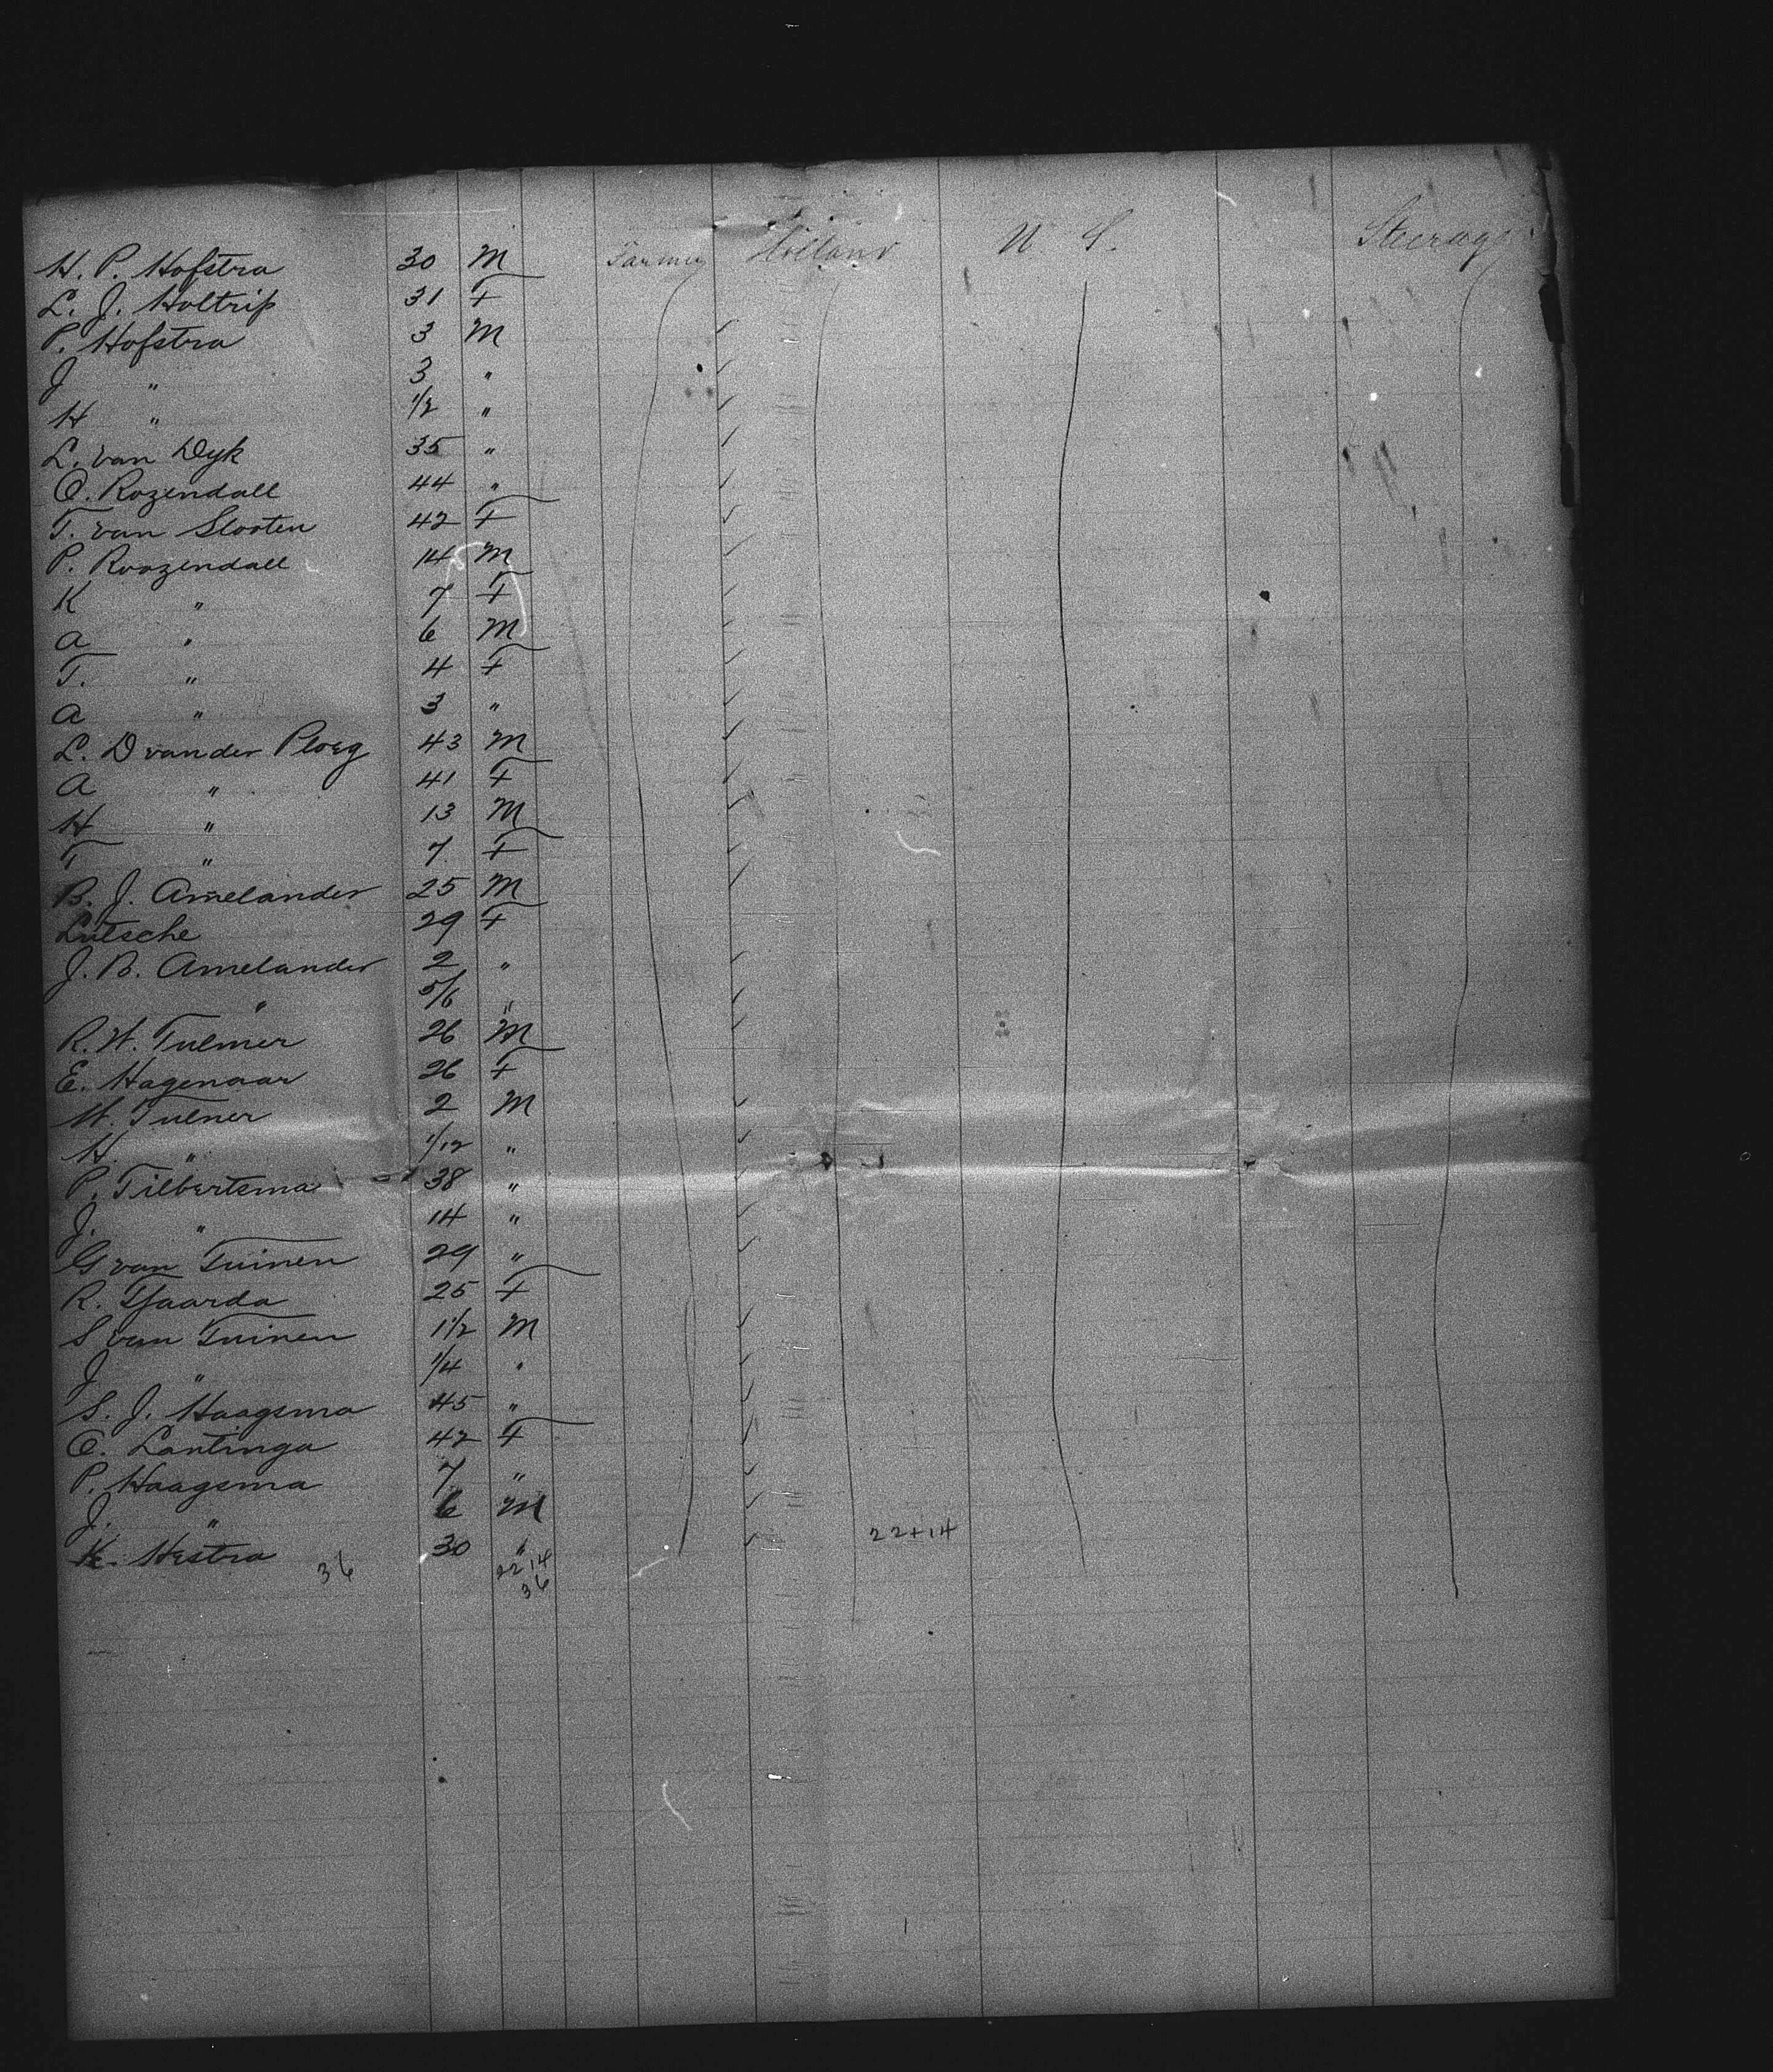 H. P. Hofstra 30 M Farmer Holland U S. Steerage
L. J. Holtrip 31 F
P. Hofstra 3 M
J " 3 "
H " 1/2 "
L. van Dyk 35 "
O. Rozendall 44 "
T. van Slooten 42 F
P. Roozendall 14 M
K " 7 F
A " 6 M
T. " 4 F
A " 3 "
L. D van der Ploeg 43 M
A " 41 F
H " 13 M
T " 7 F
B. J. Amelander 25 M
Lutsche 29 F
J. B. Amelander 2 "
" 5/6 "
R. H. Tulmer 26 M
E. Hagenaar 26 F
H. Tulner 2 M
H. " 1/12 "
P. Tilbertsma 38 "
J. " 14 "
G van Tuinen 29 "
R. Tjaarda 25 F
S van Tuinen 1 1/2 M
J " 1/4 "
S. J. Haagsma 45 "
O. Lantinga 42 F
P. Haagsma 7 "
J. " 6 M
K. Hestra 30 " 22+14
36 22 14
36